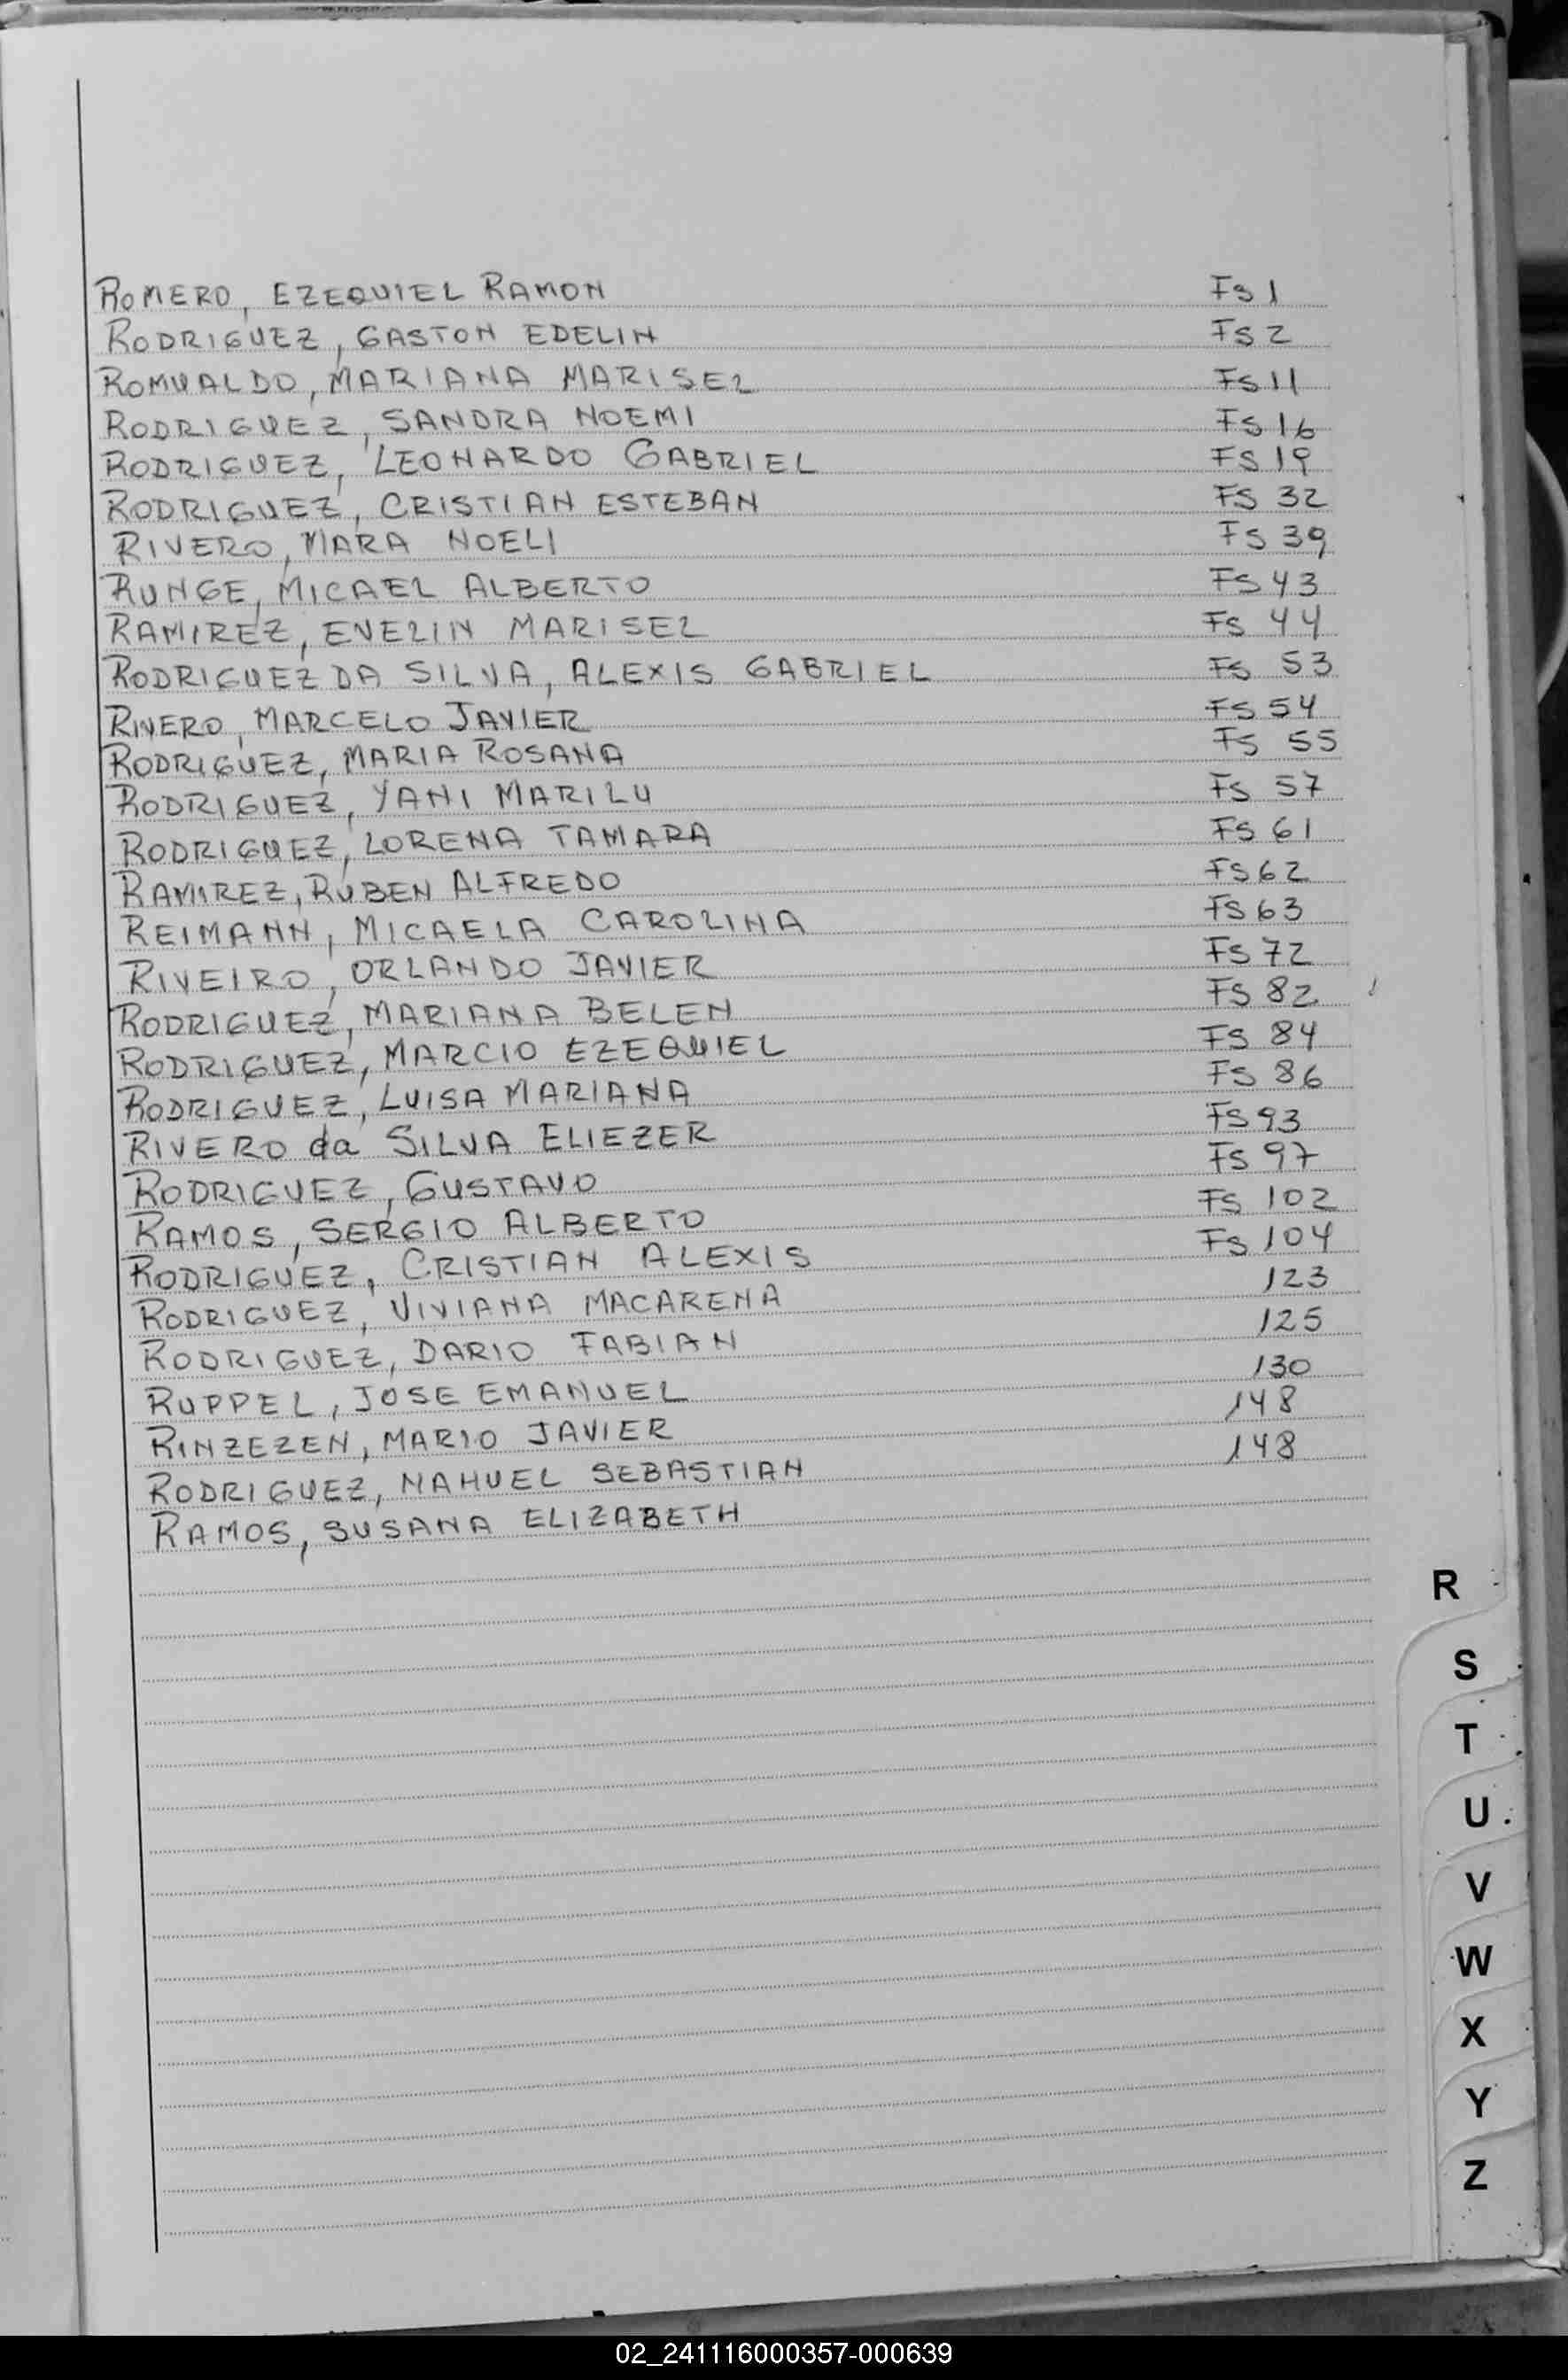 ROMERO, EZEQUIEL RAMON FS 1
RODRIGUEZ, GASTON EDELIN FS 2
ROMUALDO, MARIANA MARISEL FS 11
RODRIGUEZ, SANDRA NOEMI FS 16
RODRIGUEZ, LEONARDO GABRIEL FS 19
RODRIGUEZ, CRISTIAN ESTEBAN FS 32
RIVERO, MARA NOELI FS 39
RUNGE, MICAEL ALBERTO FS 43
RAMIREZ, EVELIN MARISEL FS 44
RODRIGUEZ DA SILVA, ALEXIS GABRIEL FS 53
RIVERO, MARCELO JAVIER FS 54
RODRIGUEZ, MARIA ROSANA FS 55
RODRIGUEZ, YANI MARILU FS 57
RODRIGUEZ, LORENA TAMARA FS 61
RAMIREZ, RUBEN ALFREDO FS 62
REIMANN, MICAELA CAROLINA FS 63
RIVEIRO, ORLANDO JAVIER FS 72
RODRIGUEZ, MARIANA BELEN FS 82
RODRIGUEZ, MARCIO EZEQUIEL FS 84
RODRIGUEZ, LUISA MARIANA FS 86
RIVERO da SILVA ELIEZER FS 93
RODRIGUEZ, GUSTAVO FS 97
RAMOS, SERGIO ALBERTO FS 102
RODRIGUEZ, CRISTIAN ALEXIS FS 104
RODRIGUEZ, VIVIANA MACARENA 123
RODRIGUEZ, DARIO FABIAN 125
RUPPEL, JOSE EMANUEL 130
RINZEZEN, MARIO JAVIER 148
RODRIGUEZ, NAHUEL SEBASTIAN 148
RAMOS, SUSANA ELIZABETH
R
S
T
U
V
W
X
Y
Z
02_241116000357-000639